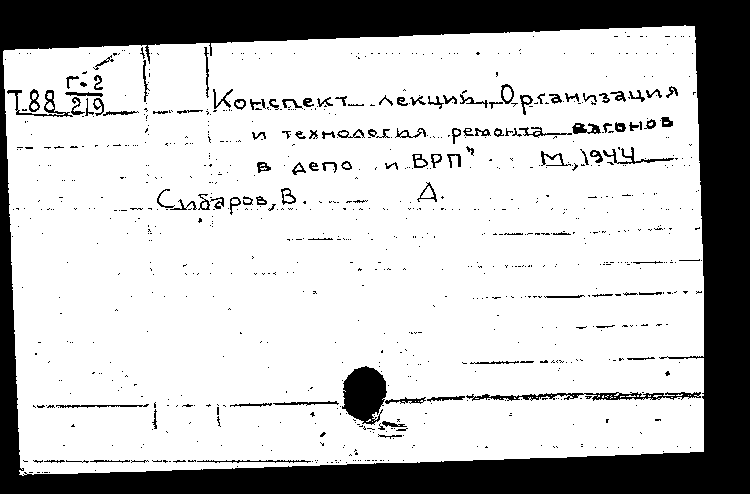 Г-2
Т88 219 Конспект лекций „Организация
и технология ремонта вагонов
в депо и ВРП" М, 1944
Сибаров, В. Д.